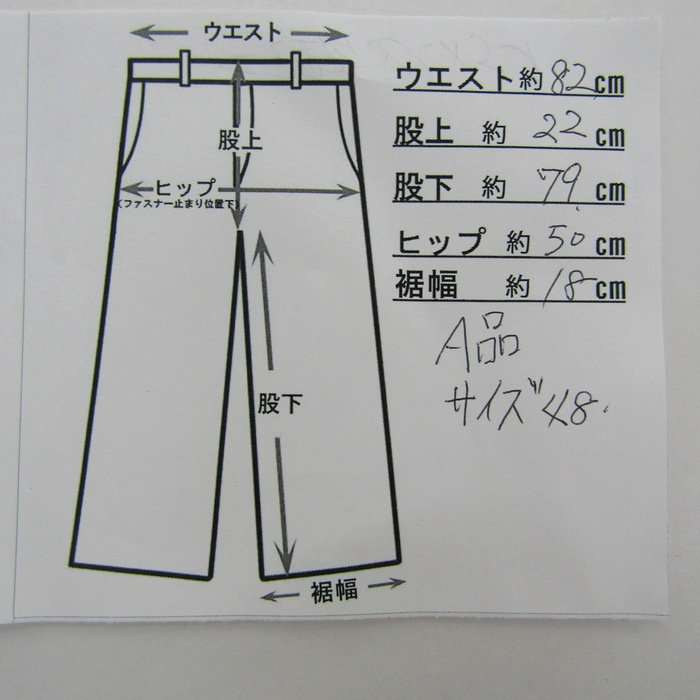 ウエスト
股上
ヒップ
(ファスナー止まり位置下)
股下
裾幅
ウエスト約82cm
股上 約 22cm
股下 約 79cm
ヒップ 約50cm
裾幅 約18cm
A品
サイズ48.